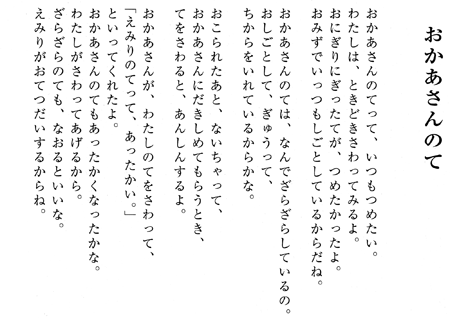 おかあさんのて
おかあさんのてって、いつもつめたい。
わたしは、ときどきさわってみるよ。
おにぎりにぎったてが、つめたかったよ。
おみずでいっつもしごとしているからだね。
おかあさんのては、なんでざらざらしているの。
おしごとして、ぎゅうって、
ちからをいれているからかな。
おこられたあと、ないちゃって、
おかあさんにだきしめてもらうとき、
てをさわると、あんしんするよ。
おかあさんが、わたしのてをさわって、
「えみりのてって、あったかい。」
といってくれたよ。
おかあさんのてもあったかくなったかな。
わたしがさわってあげるから。
ざらざらのても、なおるといいな。
えみりがおてつだいするからね。